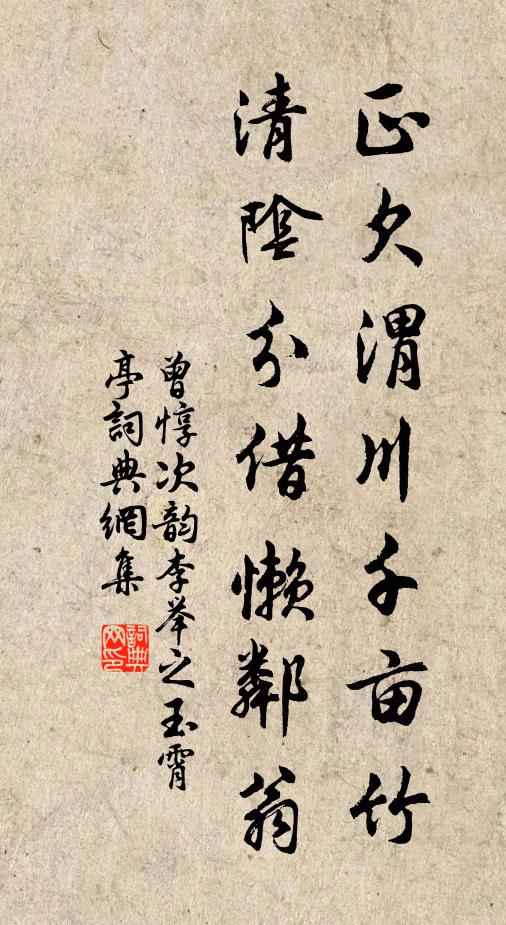 正欠渭川千亩竹
清陰分借懒鄰翁
曾惇次韵李举之玉霄
亭詞典網集
詞典网印